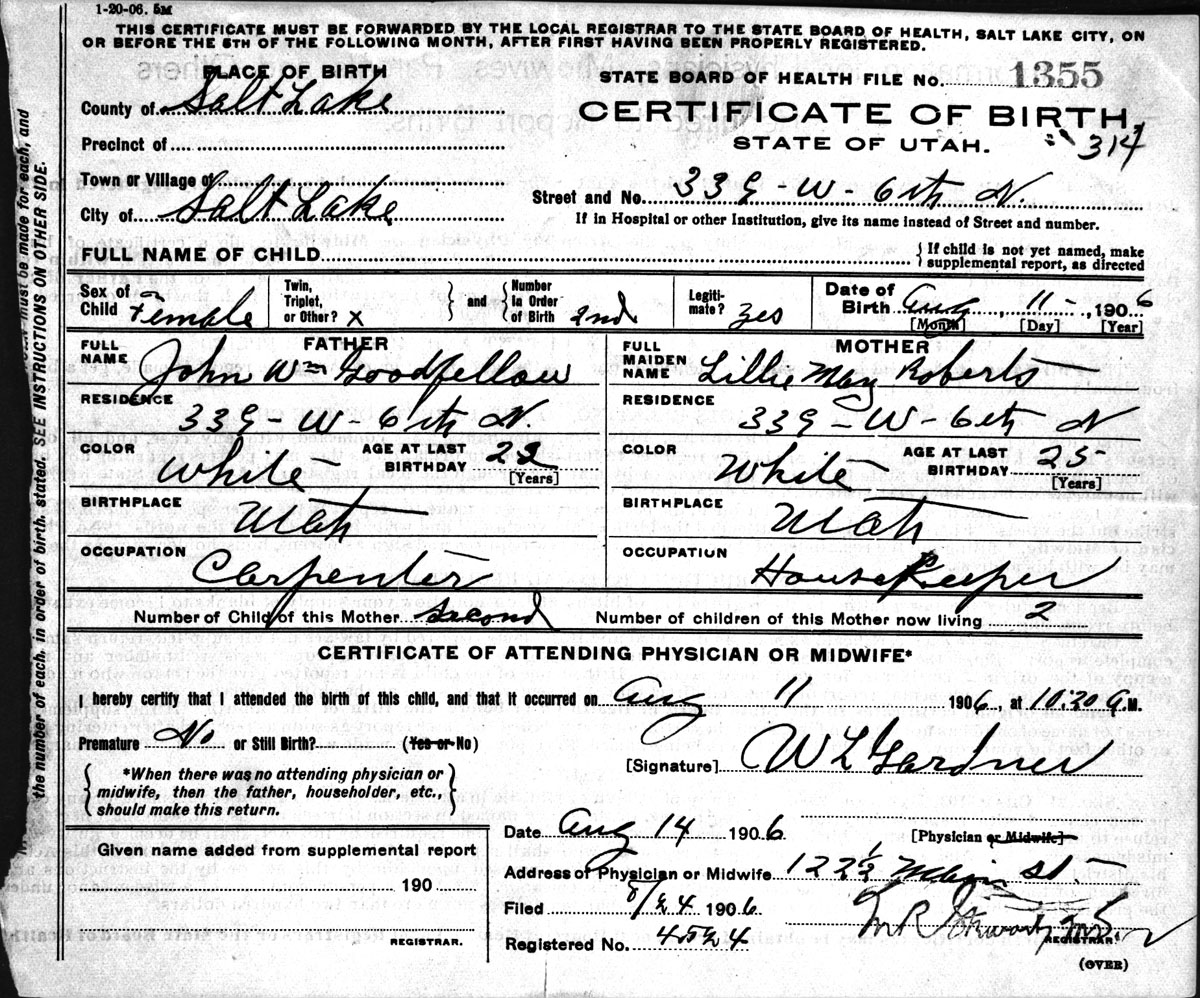 1-20-06. 5M
THIS CERTIFICATE MUST BE FORWARDED BY THE LOCAL REGISTRAR TO THE STATE BOARD OF HEALTH, SALT LAKE CITY, ON
OR BEFORE THE 5TH OF THE FOLLOWING MONTH, AFTER FIRST HAVING BEEN PROPERLY REGISTERED.
PLACE OF BIRTH
STATE BOARD OF HEALTH FILE No. 1355
County of Salt Lake
CERTIFICATE OF BIRTH
314
Precinct of
STATE OF UTAH.
Town or Village of
Street and No. 339 - W - 6th N.
City of Salt Lake
If in Hospital or other Institution, give its name instead of Street and number.
FULL NAME OF CHILD
If child is not yet named, make
supplemental report, as directed
Sex of Child Female
Twin, Triplet, or Other? X
and
Number in Order of Birth 2nd
Legiti-mate? yes
Date of Birth Aug 11 - , 1906
[Month] [Day] [Year]
FATHER
FULL NAME John Wm Goodfellow
MOTHER
FULL MAIDEN NAME Lillie May Roberts
RESIDENCE 339 - W - 6th N.
RESIDENCE 339 - W - 6th N
COLOR White AGE AT LAST BIRTHDAY [Years]
COLOR White AGE AT LAST BIRTHDAY 25 [Years]
BIRTHPLACE Utah
BIRTHPLACE Utah
OCCUPATION Carpenter
OCCUPATION House Keeper
Number of Child of this Mother second Number of children of this Mother now living 2
CERTIFICATE OF ATTENDING PHYSICIAN OR MIDWIFE*
I hereby certify that I attended the birth of this child, and that it occurred on Aug 11 1906, at 10:20 A.M.
Premature No or Still Birth? (Yes or No)
[Signature] W L Gardner
*When there was no attending physician or
midwife, then the father, householder, etc.,
should make this return.
Date Aug 14 1906
[Physician or Midwife]
Address of Physician or Midwife 122 1/2 Main St
Given name added from supplemental report
190
REGISTRAR.
Filed 8/24 1906
Registered No. 4524
REGISTRAR.
(OVER)
the number of each, in order of birth, stated. SEE INSTRUCTIONS ON OTHER SIDE.
must be made for each, and